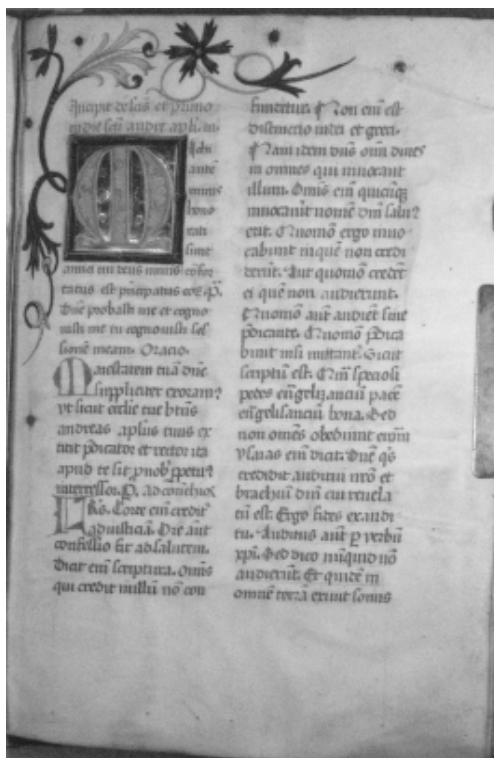 Incipit de scis et primo
in die sci andree apli. in
M ichi
autē
nimis
hono
rati
sunt
amici tui deus nimis cōfor
tatus est principatus eoꝝ. p̄.
Dñe probasti me et cogno
uisti me tu cognouisti ses
sionē meam. Oracio.
Maiestatem tuā dñe
suppliciter exoram⁹
vt sicut ecclie tue btūs
andreas aplus tuus ex
titit p̄dicator et rector ita
apud te sit ꝓ nob̄ ꝑpetu⁹
intercessor. P. ad
Fr̄s. Corde enī credit᷑
ad iusticiā. Ore aūt
confessio fit ad salutem.
Dicit enī scriptura. Omīs
qui credit in illum nō con
fundetur. ¶ Non enī est
distinctio iudei et greci.
¶ Nam idem dn̄s oīm diues
in omnes qui inuocant
illum. Omīs enī quicūqꝫ
inuocauit nomē dn̄i salu⁹
erit. Quomō ergo inuo
cabunt in quē non credi
derūt. Aut quomō credēt
ei quē non audierunt.
Quomō aūt audiēt sine
p̄dicante. Quomō p̄dica
bunt nisi mittant᷑. Sicut
scriptū est. Qm̄ speciosi
pedes euāgelizanciū pacē
euāgelisanciū bona. Sed
non omēs obediunt euan
ysaias enī dicit. Dn̄e q̄s
credidit auditui nr̄o et
brachiū dn̄i cui reuela
tū est. Ergo fides ex audi
tu. Auditus aūt ꝑ verbū
xp̄i. Sed dico nūquid nō
audierūt. Et quidē in
omnē terrā exiuit sonus